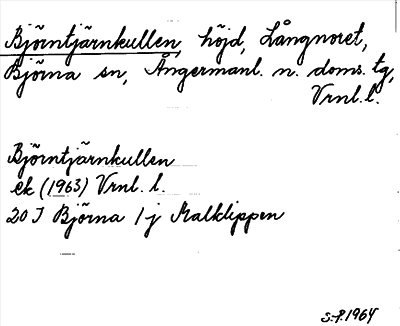 Björntjärnkullen, höjd, Långnoret,
Björna sn, Ångermanl. n. doms. tg,
Vrnl. l.
Björntjärnkullen
ek (1963) Vrnl. l.
20 I Björna 1 j Malklippen
S.P. 1964